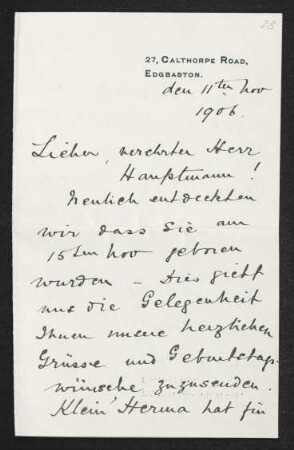 28
27, CALTHORPE ROAD,
EDGBASTON.
den 11ten Nov
1906.
Lieber, verehrter Herr
Hauptmann!
Neulich entdeckten
wir dass Sie am
15ten Nov geboren
wurden – Dies giebt
uns die Gelegenheit
Ihnen unsere herzlichen
Grüsse und Geburtstags-
wünsche zuzusenden.
Klein' Herma hat für